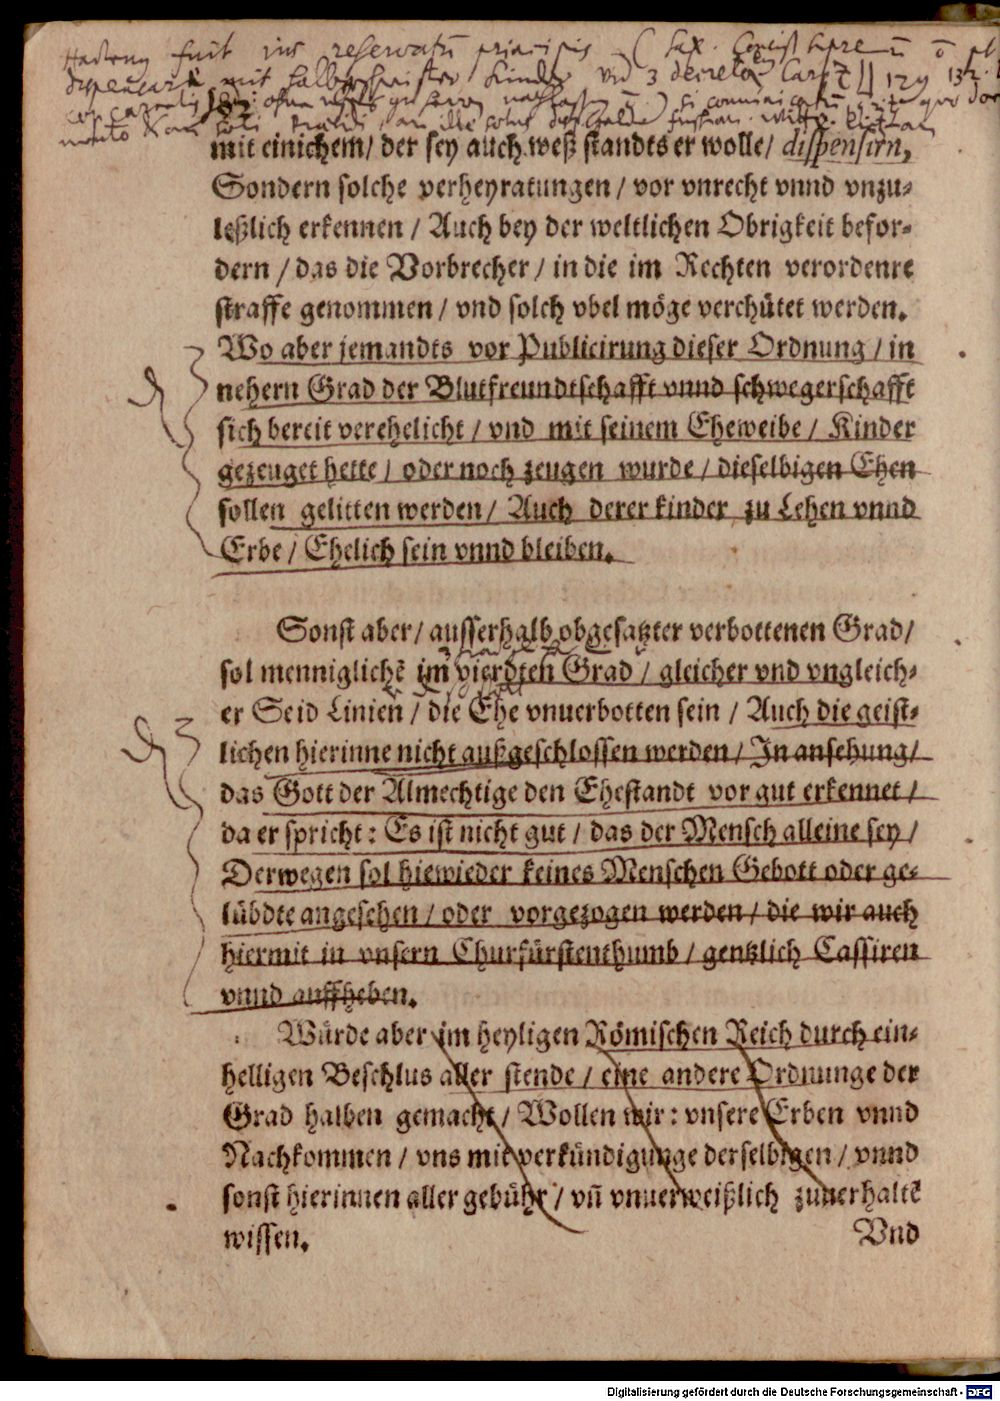 fuit ius reservatū principis
mit halbgeschwister Kinder vnd 3
mit einichem/ der sey auch weß standts er wolle/ dispensirn,
Sondern solche verheyratungen / vor vnrecht vnnd vnzu⸗
leßlich erkennen / Auch bey der weltlichen Obrigkeit befor⸗
dern / das die Vorbrecher / in die im Rechten verordenre
straffe genommen / vnd solch vbel möge verchütet werden.
Wo aber jemandts vor Publicirung dieser Ordnung / in
nehern Grad der Blutfreundtschafft vnnd schwegerschafft
sich bereit verehelicht / vnd mit seinem Eheweibe / Kinder
gezeuget hette / oder noch zeugen wurde / dieselbigen Ehen
sollen gelitten werden / Auch derer kinder zu Lehen vnnd
Erbe / Ehelich sein vnnd bleiben.
Sonst aber / ausserhalb obgesatzter verbottenen Grad /
sol menniglichē im vierdten Grad / gleicher vnd vngleich⸗
er Seid Linien / die Ehe vnuerbotten sein / Auch die geist⸗
lichen hierinne nicht außgeschlossen werden / In ansehung /
das Gott der Almechtige den Ehestandt vor gut erkennet /
da er spricht: Es ist nicht gut / das der Mensch alleine sey /
Derwegen sol hiewieder keines Menschen Gebott oder ge⸗
lübdte angesehen / oder vorgezogen werden / die wir auch
hiermit in vnsern Churfürstenthumb / gentzlich Cassiren
vnnd auffheben.
Würde aber im heyligen Römischen Reich durch ein⸗
helligen Beschlus aller stende / eine andere Ordnunge der
Grad halben gemacht / Wollen wir: vnsere Erben vnnd
Nachkommen / vns mit verkündigunge derselbigen / vnnd
sonst hierinnen aller gebühr / vñ vnuerweißlich zuuerhaltē
wissen.
Vnd
Digitalisierung gefördert durch die Deutsche Forschungsgemeinschaft - DFG